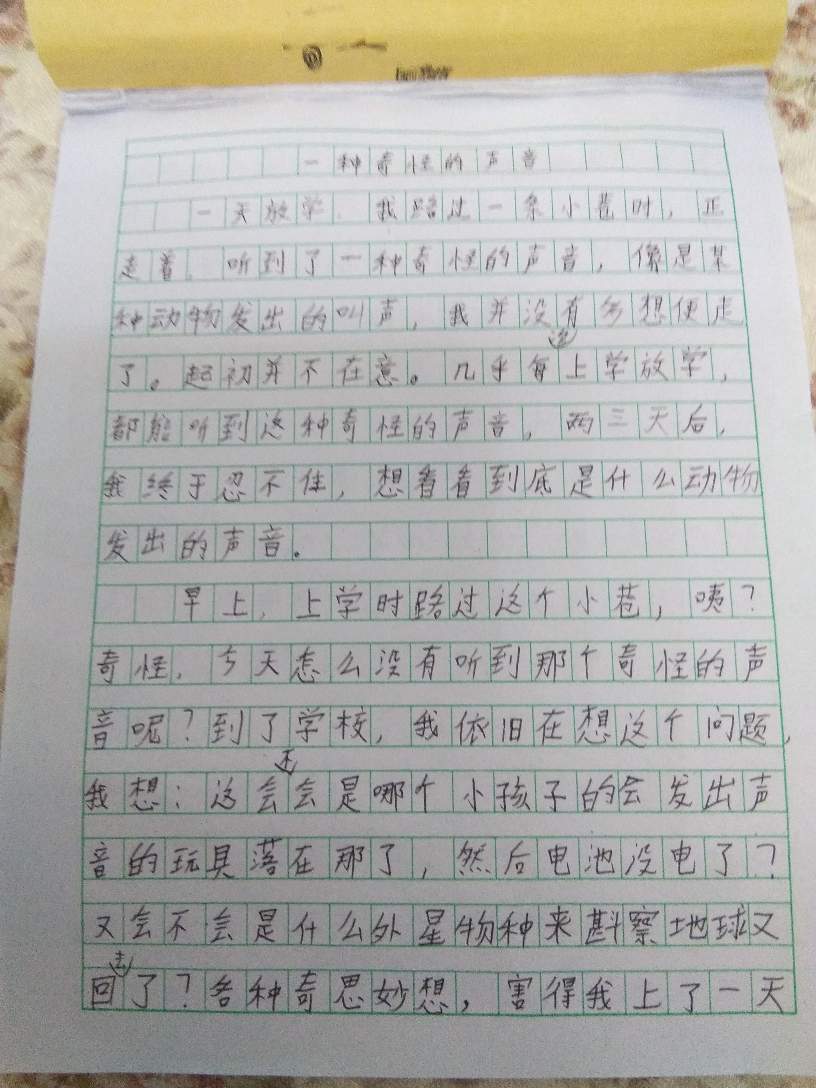 一种奇怪的声音
一天放学，我路过一条小巷时，正
走着，听到了一种奇怪的声音，像是某
种动物发出的叫声，我并没有多想便走
了。起初并不在意。几乎每次上学放学，
都能听到这种奇怪的声音，两三天后，
我终于忍不住，想看看到底是什么动物
发出的声音。
早上，上学时路过这个小巷，咦？
奇怪，今天怎么没有听到那个奇怪的声
音呢？到了学校，我依旧在想这个问题，
我想：这会不会是哪个小孩子的会发出声
音的玩具落在那了，然后电池没电了？
又会不会是什么外星物种来斟察地球又
回去了？各种奇思妙想，害得我上了一天